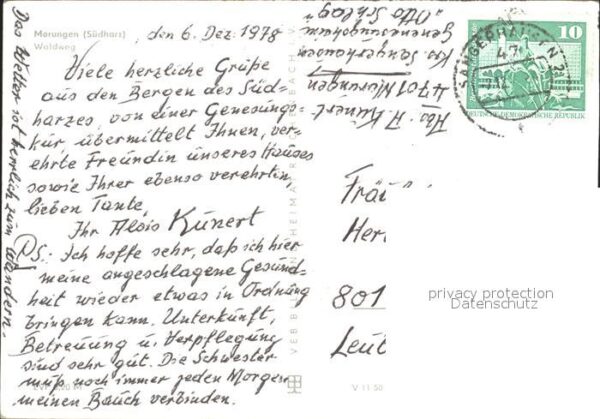 Morungen (Südharz)
Waldweg
, den 6. Dez. 1978
Viele herzliche Grüße
aus den Bergen des Süd-
harzes, von einer Genesungs-
kur, übermittelt Ihnen, ver-
ehrte Freundin unseres Hauses
sowie Ihrer ebenso verehrten,
lieben Tante,
Ihr Alois Kunert
PS.: Ich hoffe sehr, daß ich hier
meine angeschlagene Gesund-
heit wieder etwas in Ordnung
bringen kann. Unterkunft,
Betreuung u. Verpflegung
sind sehr gut. Die Schwester
muß noch immer jeden Morgen
meinen Bauch verbinden.
Das Wetter ist herrlich zum Wandern.
Abs.: A. Kunert
4701 Morungen
Krs. Sangerhausen
Genesungsheim
"Otto Schlag"
10
DEUTSCHE DEMOKRATISCHE REPUBLIK
SANGERHAUSEN
47
Fräu
Her
801
Leut
privacy protection
Datenschutz
V 11 50